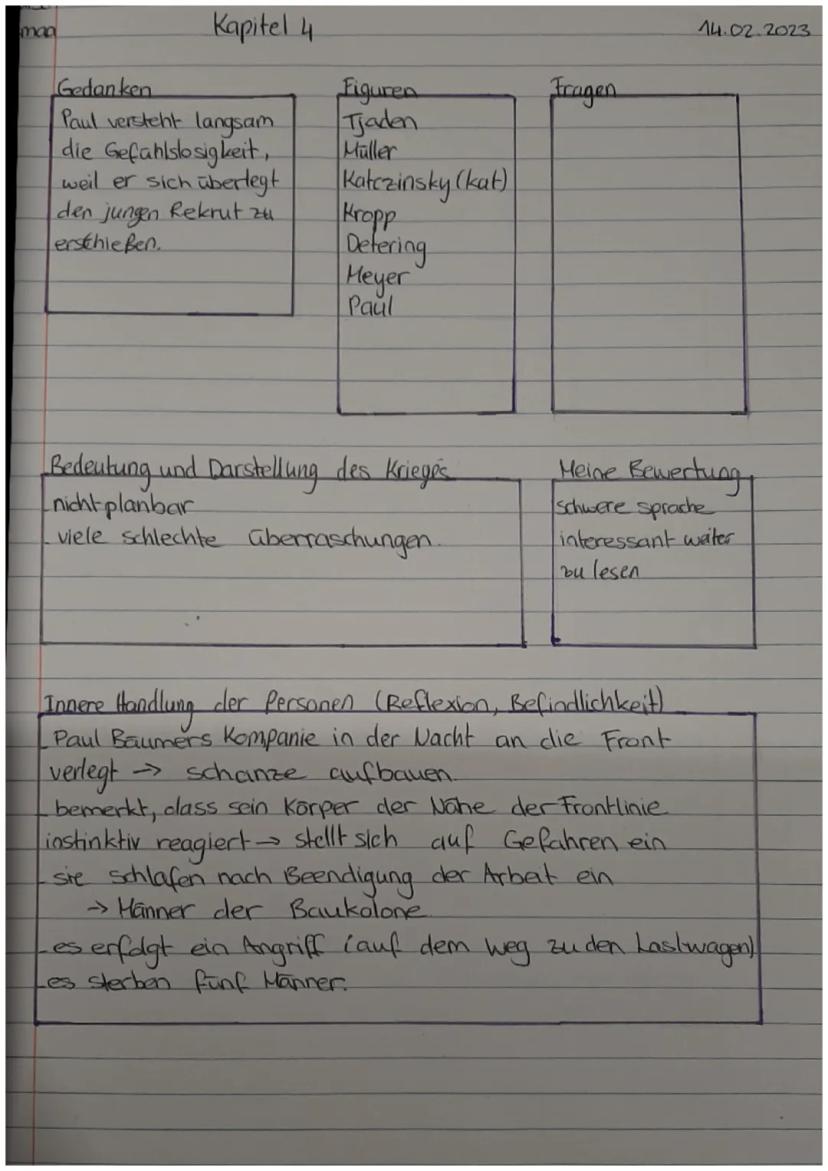 maa
Kapitel 4
14.02.2023
Gedanken
Paul versteht langsam
die Gefühlslosigkeit,
weil er sich überlegt
den jungen Rekrut zu
erschießen.
Figuren
Tjaden
Müller
Katczinsky (kat)
Kropp
Detering
Meyer
Paul
Fragen
Bedeutung und Darstellung des Krieges
- nicht planbar
- viele schlechte überraschungen.
Meine Bewertung
schwere sprache
interessant weiter
zu lesen
Innere Handlung der Personen (Reflexion, Befindlichkeit)
- Paul Bäumers Kompanie in der Nacht an die Front
verlegt → schanze aufbauen.
- bemerkt, dass sein Körper der Nähe der Frontlinie
instinktiv reagiert → stellt sich auf Gefahren ein
- sie schlafen nach Beendigung der Arbeit ein
→ Männer der Baukolone
- es erfolgt ein Angriff (auf dem weg zu den Lastwagen)
- es sterben fünf Männer.